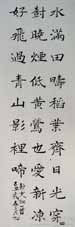 水滿田疇稻葉齊日光穿
樹曉煙低黃鶯也愛新涼
好飛過青山影裡啼